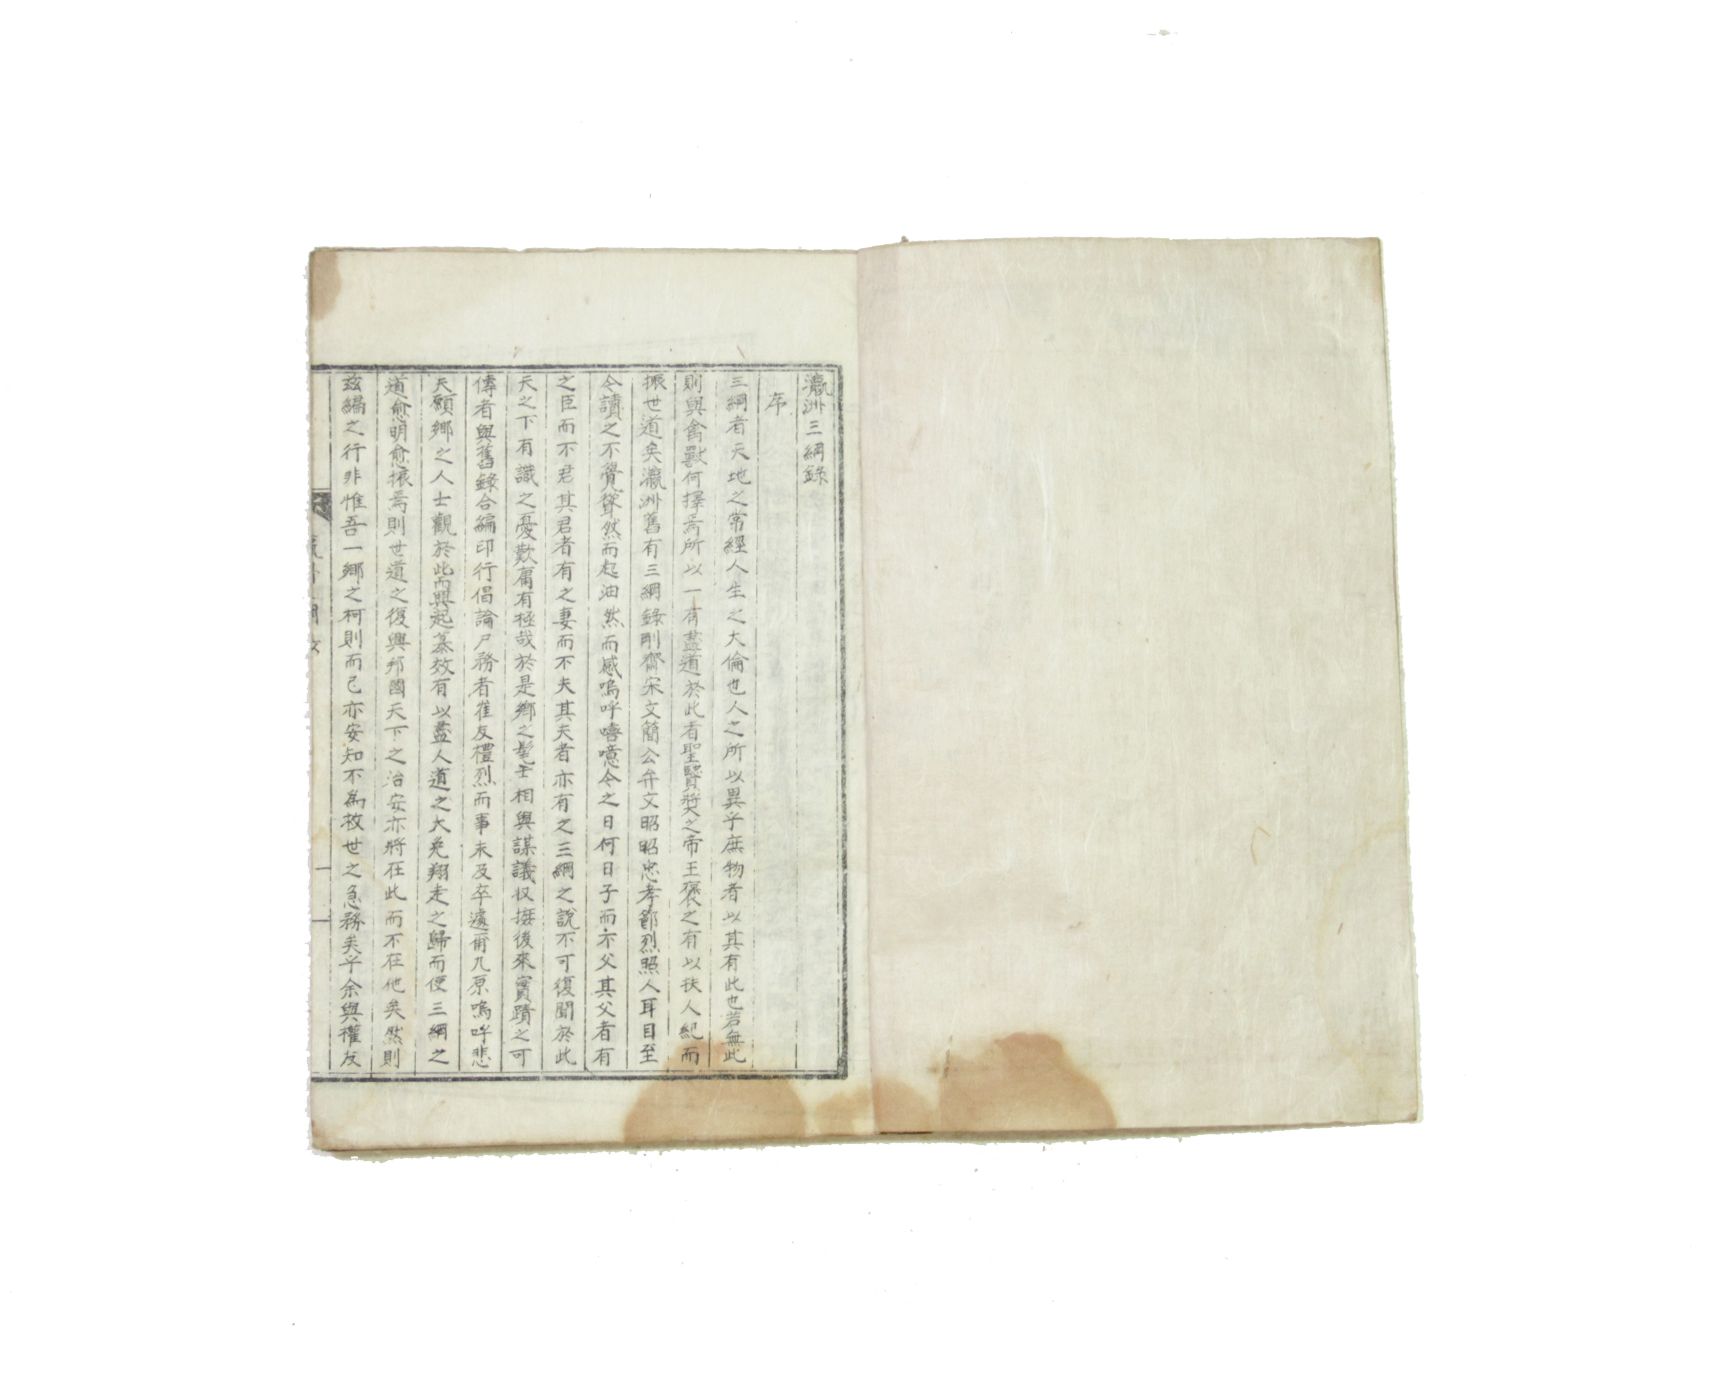 瀛洲三綱錄
序
三綱者天地之常經人生之大倫也人之所以異乎庶物者以其有此也若無此
則與禽獸何擇焉所以一有盡道於此者聖賢獎之帝王褒之有以扶人紀而
振世道矣瀛洲舊有三綱錄剛齋宋文簡公弁文昭昭忠孝節烈照人耳目至
今讀之不覺聳然而起油然而感嗚呼噫噫今之日何日子而不父其父者有
之臣而不君其君者有之妻而不夫其夫者亦有之三綱之說不可復聞於此
天之下有識之憂歎庸有極哉於是鄉之髦士相與謀議收摭後來實蹟之可
傳者與舊錄合編印行倡論尸務者崔友禮烈而事未及卒遽爾九原嗚呼悲
夫願鄉之人士觀於此而興起慕效有以盡人道之大免翔走之歸而使三綱之
道愈明愈振焉則世道之復興邦國天下之治安亦將在此而不在他矣然則
茲編之行非惟吾一鄉之柯則而已亦安知不為救世之急務矣乎余與權友